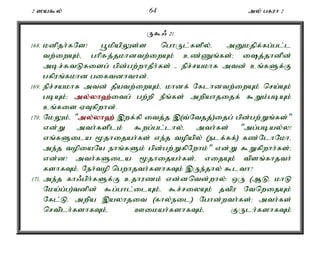 2 ஸயகூல் 64 அல் பகரா 2
ருகூஃ 21
168. மனிதர்களே! பூமியிலுள்ள பொருட்களில், அனுமதிக்கப்பட்ட
வற்றையும், பரிசுத்தமானவற்றையும் உண்ணுங்கள்; ஷைத்தானின்
அடிச்சுவடுகளைப் பின்பற்றாதீர்கள் - நிச்சயமாக அவன் உங்களுக்கு
பகிரங்கமான பகைவனாவான்.
169. நிச்சயமாக அவன் தீயவற்றையும், மானக் கேடானவற்றையும் செய்யும்
படியும்; அல்லாஹ்வைப் பற்றி நீங்கள் அறியாததைக் கூறும்படியும்
உங்களை ஏவுகிறான்.
170. மேலும், "அல்லாஹ் இறக்கி வைத்த இ(வ்வேதத்)தைப் பின்பற்றுங்கள்"
என்று அவர்களிடம் கூறப்பட்டால், அவர்கள் "அப்படியல்ல!
எங்களுடைய மூதாதையர்கள் எந்த வழியில் (நடக்கக்) கண்டோமோ,
அந்த வழியையே நாங்களும் பின்பற்றுகிறோம்" என்று கூறுகிறார்கள்;
என்ன! அவர்களுடைய மூதாதையர்கள், எதையும் விளங்காதவர்
களாகவும், நேர்வழி பெறாதவர்களாகவும் இருந்தால் கூடவா!
171. அந்த காஃபிர்களுக்கு உதாரணம் என்னவென்றால்; ஒரு (ஆடு, மாடு
மேய்ப்ப)வனின் கூப்பாட்டையும், கூச்சலையும் தவிர வேறெதையும்
கேட்டு, அறிய இயலாதவை (கால்நடை) போன்றவர்கள்; அவர்கள்
செவிடர்களாகவும், ஊமையர்களாகவும், குருடர்களாகவும்